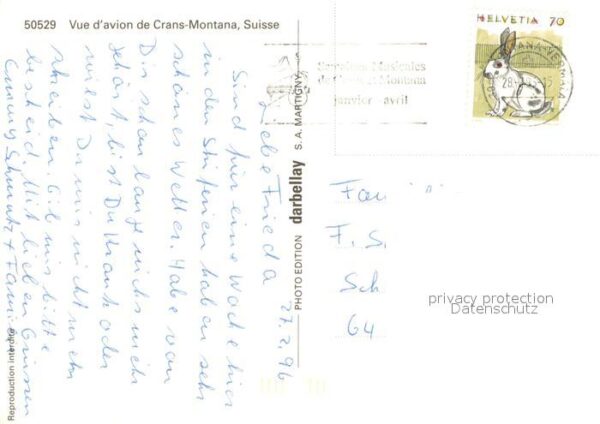 50529 Vue d'avion de Crans-Montana, Suisse
HELVETIA 70
Semaines Musicales
de Crans-Montana
janvier - avril
27.2.96
Liebe Frieda
Sind für eine Woche hier
in den Skiferien haben sehr
schönes Wetter. Habe von
Dir schon lange nichts mehr
gehört, bist Du Krank oder
willst Du mir nicht mehr
schreiben. Gib mir bitte
bescheid. Mit lieben Grüssen
Schmutz + Familie
PHOTO EDITION darbellay S.A. MARTIGNY
Reproduction interdite
F. S.
Sch
64
privacy protection
Datenschutz